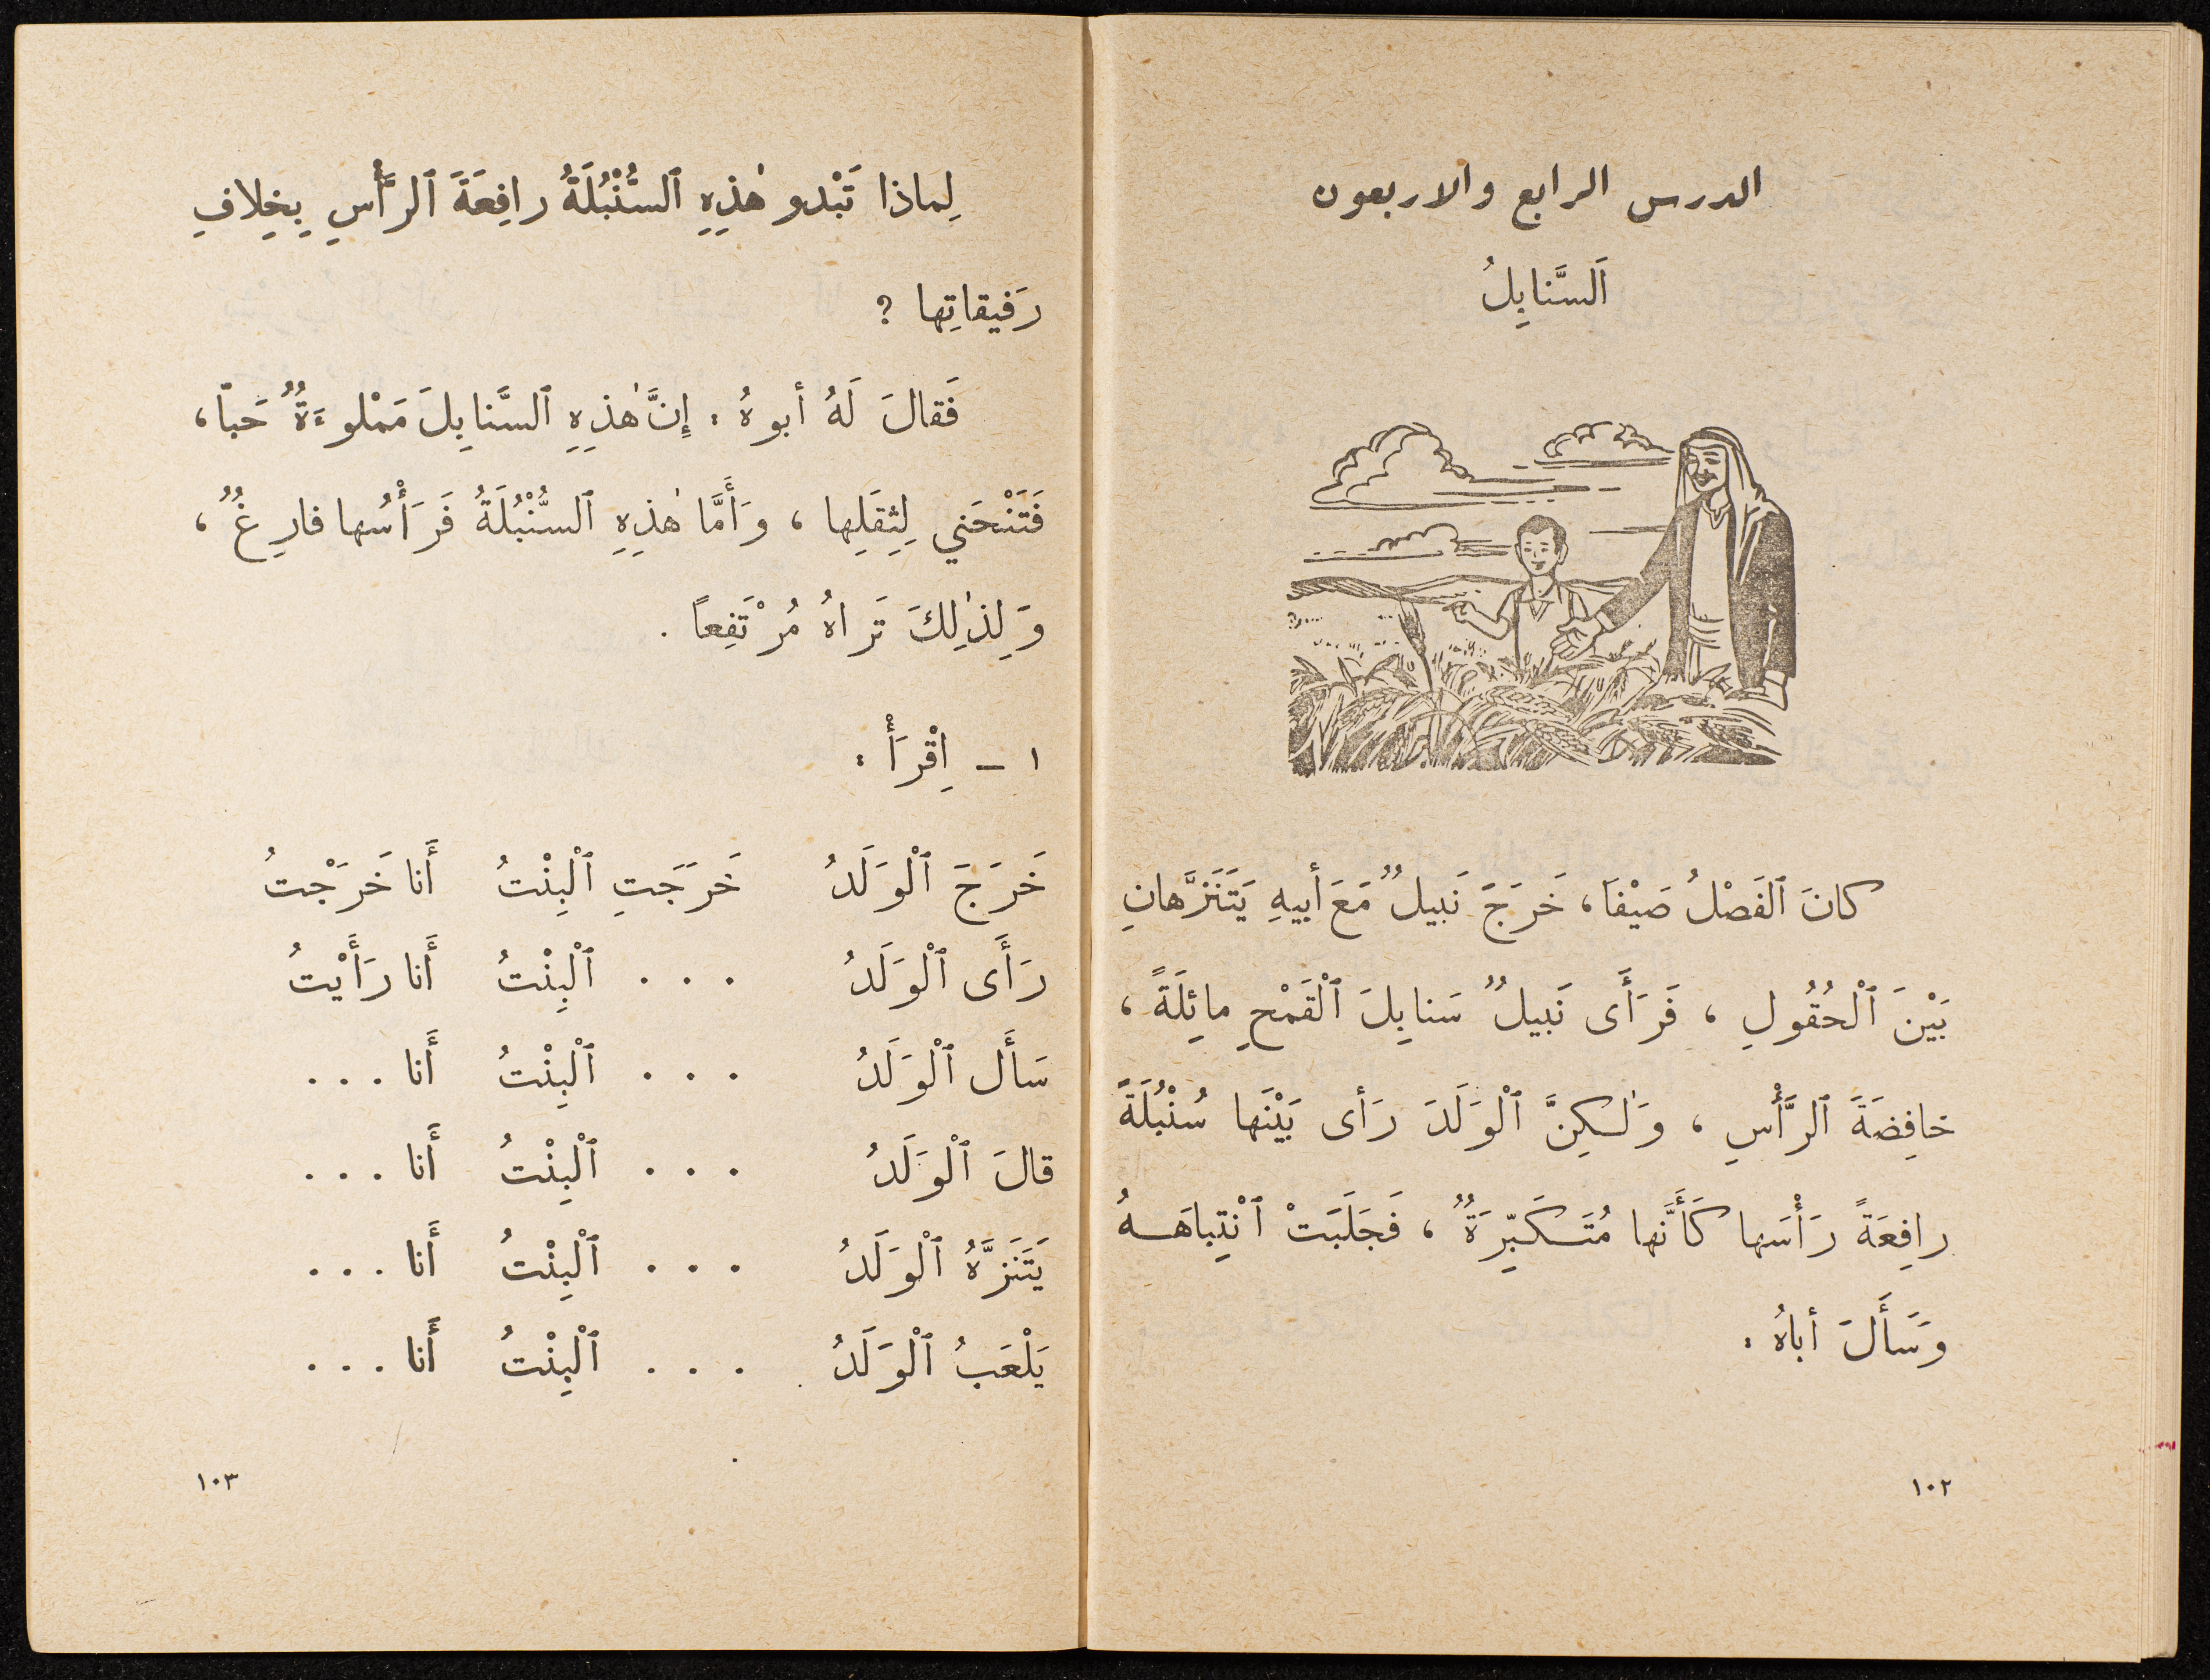 الدرس الرابع والاربعون
اَلسَّنابِلُ
كانَ ٱلفَصْلُ صَيْفاً، خَرَجَ نَبيلٌ مَعَ أبيهِ يَتَنَزَّهانِ
بَيْنَ ٱلْحُقُولِ ، فَرَأَى نَبيلٌ سَنابِلَ ٱلْقَمْحِ مائِلَةً ،
خافِضَةَ ٱلرَّأْسِ ، وَلٰكِنَّ ٱلْوَلَدَ رَأى بَيْنَها سُنْبُلَةً
رافِعَةً رَأْسَها كَأَنَّها مُتَكَبِّرَةٌ ، فَجَلَبَتْ ٱنْتِباهَهُ
وَسَأَلَ أباهُ :
١٠٢
لِماذا تَبْدو هٰذِهِ ٱلسُّنْبُلَةُ رافِعَةَ ٱلرَّأْسِ بِخِلافِ
رَفيقاتِها ؟
فَقالَ لَهُ أبوهُ : إِنَّ هٰذِهِ ٱلسَّنابِلَ مَمْلوءَةٌ حَبّاً ،
فَتَنْحَني لِثِقَلِها ، وَأَمَّا هٰذِهِ ٱلسُّنْبُلَةُ فَرَأْسُها فارِغٌ ،
وَلِذٰلِكَ تَراهُ مُرْتَفِعاً .
١ – اِقْرَأْ :
خَرَجَ ٱلْوَلَدُ خَرَجَتِ ٱلْبِنْتُ أَنا خَرَجْتُ
رَأَى ٱلْوَلَدُ . . . ٱلْبِنْتُ أَنا رَأَيْتُ
سَأَل ٱلْوَلَدُ . . . ٱلْبِنْتُ أَنا . . .
قالَ ٱلْوَلَدُ . . . ٱلْبِنْتُ أَنا . . .
يَتَنَزَّهُ ٱلْوَلَدُ . . . ٱلْبِنْتُ أَنا . . .
يَلْعَبُ ٱلْوَلَدُ . . . ٱلْبِنْتُ أَنا . . .
١٠٣